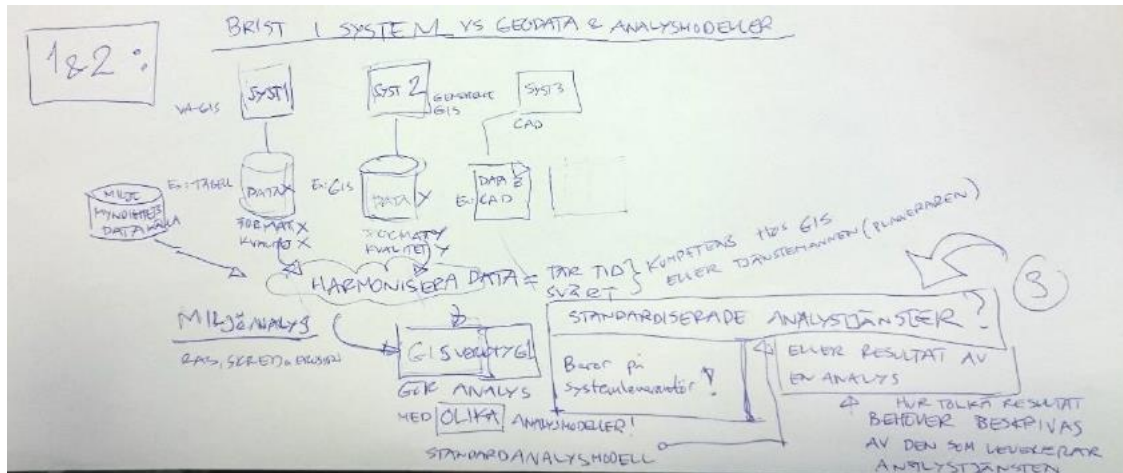 BRIST I SYSTEM VS GEODATA & ANALYSMODELLER
1&2:
SYST1
SYST 2
SYST3
VA-GIS
GIS
CAD
EX: TABELL
DATA X
EX: GIS
DATA Y
DATA Z
EX: CAD
MILJÖ
MYNDIGHETS
DATAKÄLLA
FORMAT X
KVALITET X
FORMAT Y
KVALITET Y
HARMONISERA DATA = TAR TID
SVÅRT
KOMPETENS HOS GIS
ELLER TJÄNSTEMANNEN (PLANERAREN)
3
MILJÖANALYS
RAS, SKRED, EROSION
GISVERKTYG
GÖR ANALYS
MED OLIKA ANALYSMODELLER!
STANDARDANALYSMODELL
STANDARDISERADE ANALYSTJÄNSTER?
Beror på
systemleverantör!
ELLER RESULTAT AV
EN ANALYS
HUR TOLKA RESULTAT
BEHÖVER BESKRIVAS
AV DEN SOM LEVERERAR
ANALYSTJÄNSTEN